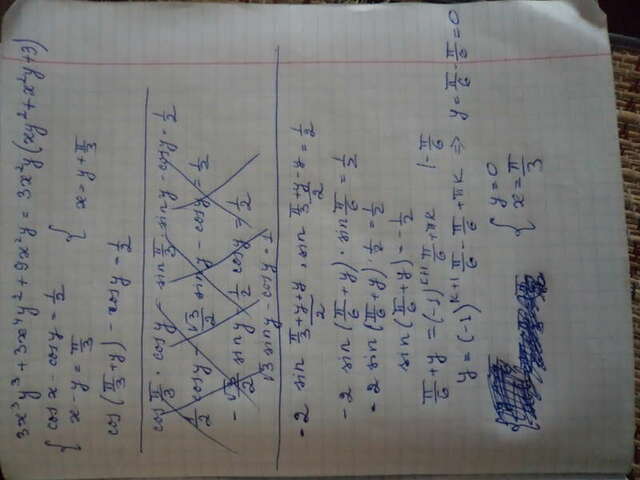 3x³y³ + 3x⁴y² + 9x²y = 3x²y(xy² + x²y + 3)
{ cos x - cos y = 1/2
x - y = π/3
{ x = y + π/3
cos(π/3 + y) - cos y = 1/2
cos π/3 · cos y - sin π/3 · sin y - cos y = 1/2
1/2 cos y - √3/2 sin y - cos y = 1/2
-√3/2 sin y - 1/2 cos y = 1/2
√3 sin y - cos y = 1
-2 sin (π/3 + y + y)/2 · sin (π/3 + y - y)/2 = 1/2
-2 sin(π/6 + y) · sin π/6 = 1/2
-2 sin(π/6 + y) · 1/2 = 1/2
sin(π/6 + y) = -1/2
π/6 + y = (-1)^(k+1) π/6 + πk |-π/6
y = (-1)^(k+1) π/6 - π/6 + πk ⇒ y = π/6 - π/6 = 0
{ y = 0
x = π/3